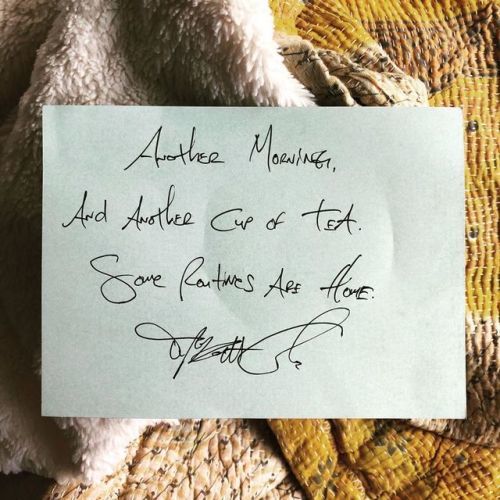 Another Morning,
And Another Cup of Tea.
Some Routines Are Home.